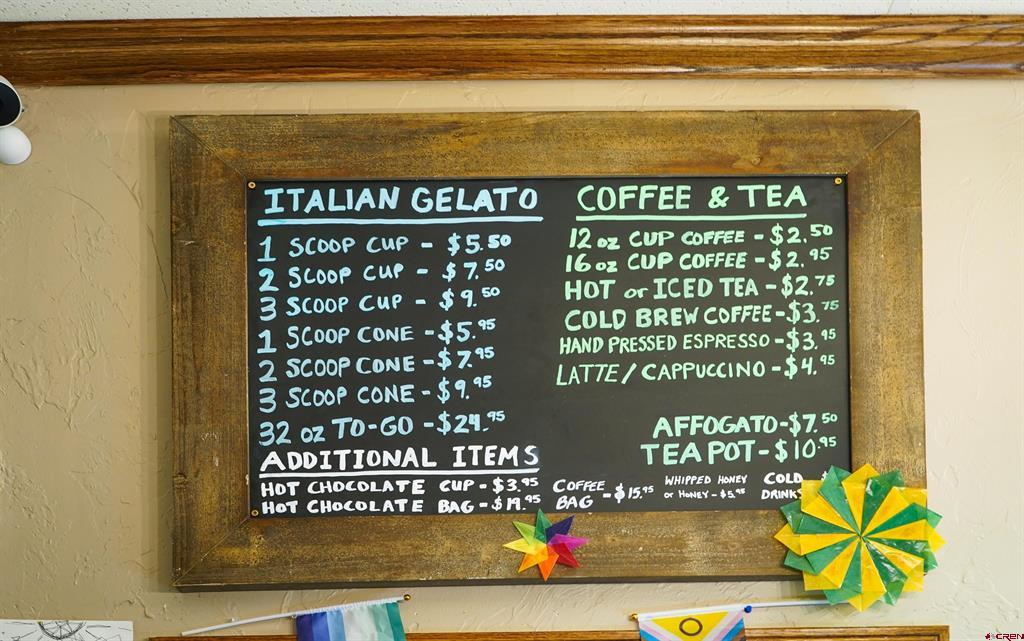 ITALIAN GELATO
1 SCOOP CUP - $5.50
2 SCOOP CUP - $7.50
3 SCOOP CUP - $9.50
1 SCOOP CONE - $5.95
2 SCOOP CONE - $7.95
3 SCOOP CONE - $9.95
32 oz TO-GO - $24.95
ADDITIONAL ITEMS
HOT CHOCOLATE CUP - $3.95
HOT CHOCOLATE BAG - $19.95
COFFEE
BAG - $15.95
WHIPPED HONEY
or HONEY - $5.95
COLD $
DRINKS
COFFEE & TEA
12 oz CUP COFFEE - $2.50
16 oz CUP COFFEE - $2.95
HOT or ICED TEA - $2.75
COLD BREW COFFEE - $3.75
HAND PRESSED ESPRESSO - $3.95
LATTE / CAPPUCCINO - $4.95
AFFOGATO - $7.50
TEA POT - $10.95
CREN